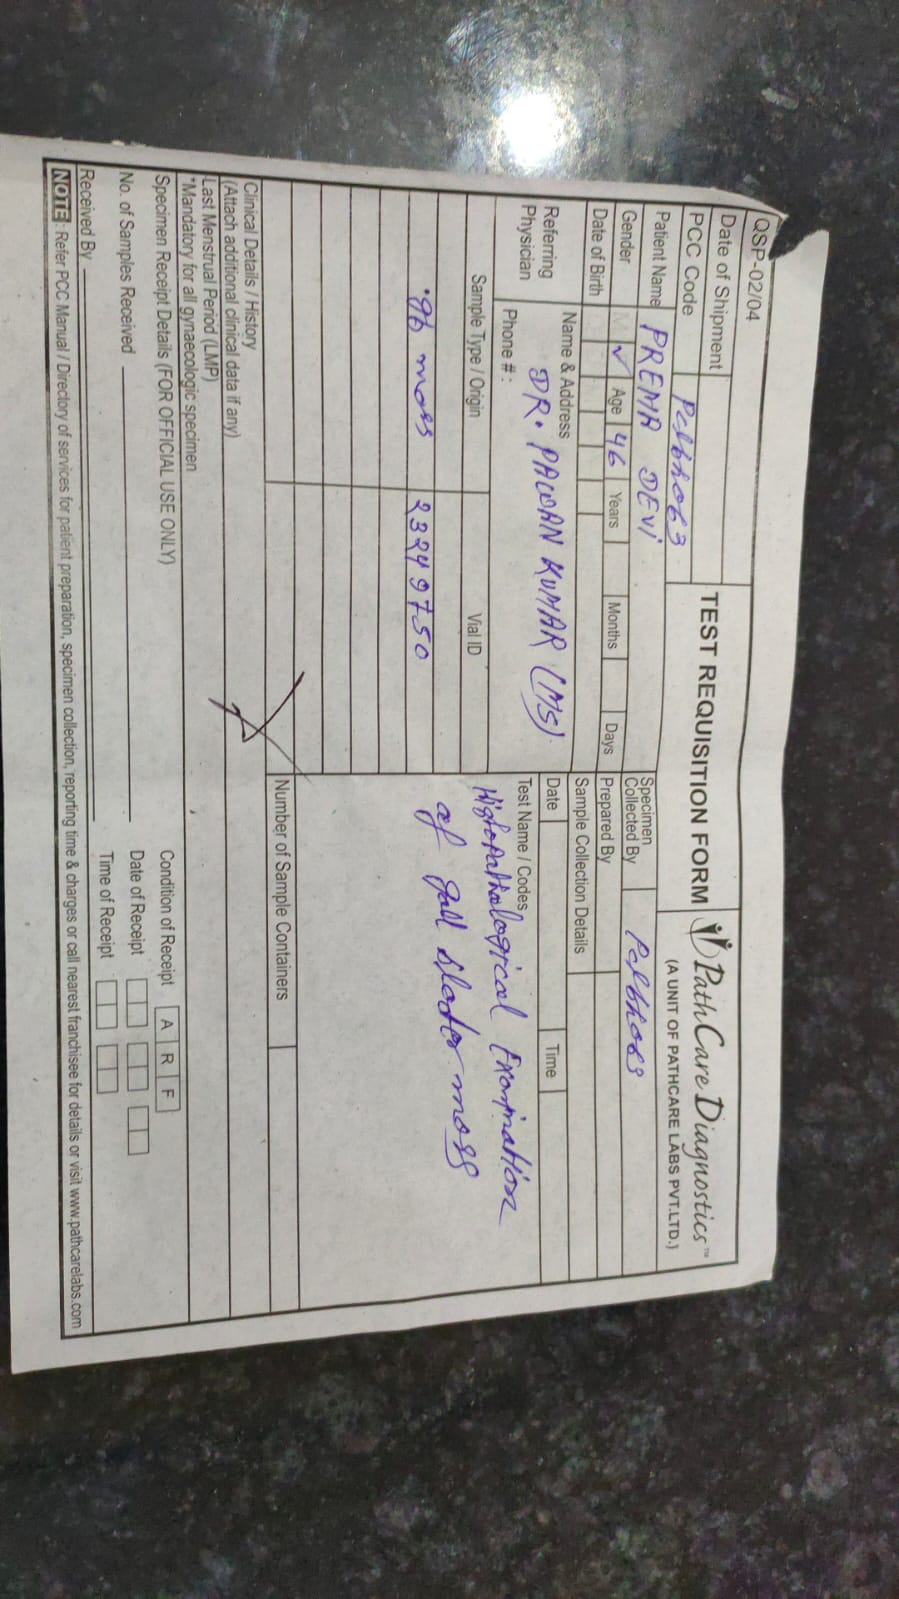 QSP-02/04
Date of Shipment
TEST REQUISITION FORM
PathCare Diagnostics™
(A UNIT OF PATHCARE LABS PVT.LTD.)
PCC Code
Patient Name PREMA DEVI
Gender M ✓ Age 46 Years Months Days
Date of Birth
Specimen
Collected By
Prepared By
Sample Collection Details
Date Time
Referring
Physician
Name & Address
DR. PAWAN KUMAR (MS)
Phone # :
Sample Type / Origin Vial ID
mass 23249750
Test Name / Codes
Histopathological Examination
of gall bladder mass
Number of Sample Containers
Clinical Details / History
(Attach additional clinical data if any)
Last Menstrual Period (LMP)
*Mandatory for all gynaecologic specimen
Specimen Receipt Details (FOR OFFICIAL USE ONLY)
Condition of Receipt A R F
No. of Samples Received
Date of Receipt
Received By
Time of Receipt
NOTE : Refer PCC Manual / Directory of services for patient preparation, specimen collection, reporting time & charges or call nearest franchisee for details or visit www.pathcarelabs.com